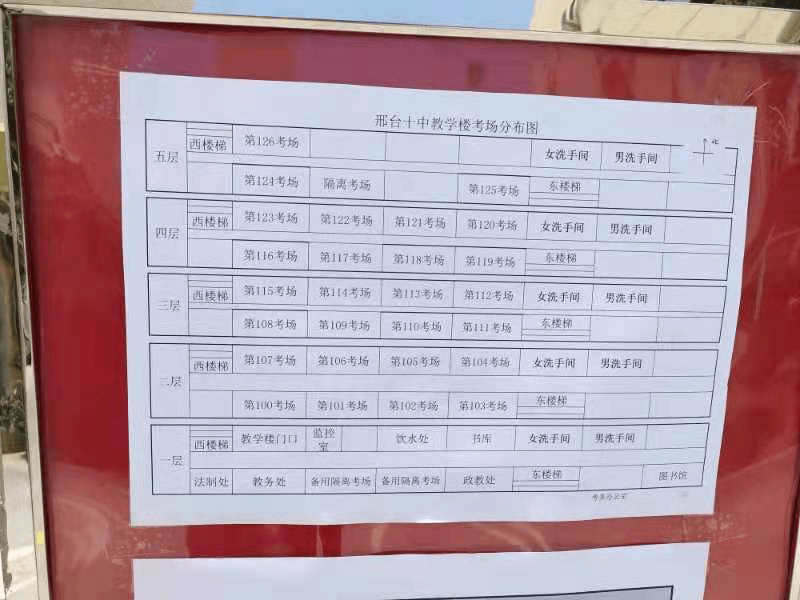 邢台十中教学楼考场分布图
北
五层 西楼梯 第126考场 女洗手间 男洗手间
第124考场 隔离考场 第125考场 东楼梯
四层 西楼梯 第123考场 第122考场 第121考场 第120考场 女洗手间 男洗手间
第116考场 第117考场 第118考场 第119考场 东楼梯
三层 西楼梯 第115考场 第114考场 第113考场 第112考场 女洗手间 男洗手间
第108考场 第109考场 第110考场 第111考场 东楼梯
二层 西楼梯 第107考场 第106考场 第105考场 第104考场 女洗手间 男洗手间
第100考场 第101考场 第102考场 第103考场 东楼梯
一层 西楼梯 教学楼门口 监控室 饮水处 书库 女洗手间 男洗手间
法制处 教务处 备用隔离考场 备用隔离考场 政教处 东楼梯 图书馆
考务办公室